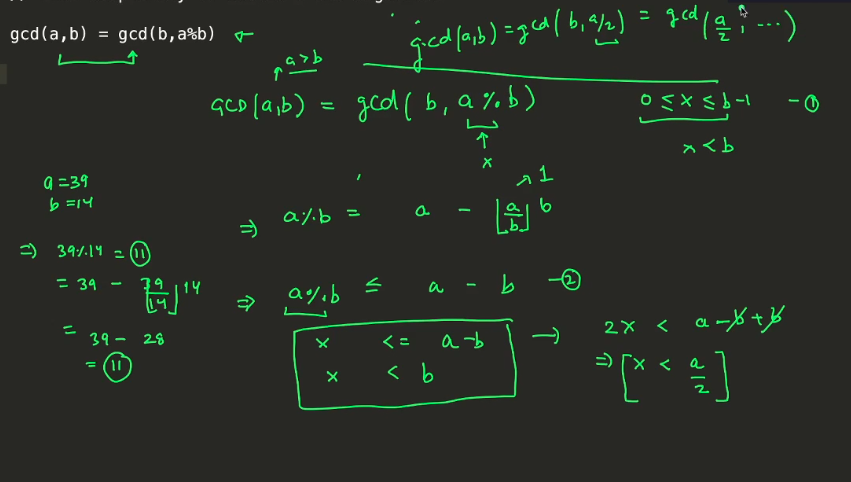 gcd(a,b) = gcd(b,a%b)
gcd(a,b) = gcd(b, a/2) = gcd(a/2, ...)
a > b
GCD(a,b) = gcd(b, a%b)
x
0 ≤ x ≤ b-1 - ①
x < b
a = 39
b = 14
1
⇒ a%b = a - ⌊a/b⌋ b
⇒ 39%14 = 11
= 39 - ⌊39/14⌋ 14
= 39 - 28
= 11
⇒ a%b ≤ a - b - ②
x <= a-b
x < b
→ 2x < a - b + b
⇒ [x < a/2]